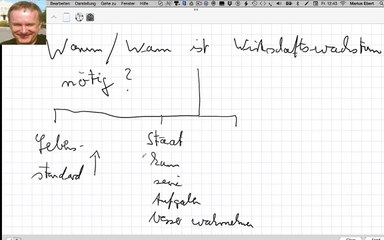 Bearbeiten Darstellung Gehe zu Fenster Hilfe
Marius Ebert
Warum/Wann ist Wirtschaftswachstum
nötig?
Lebens-
standard
Staat
kann
seine
Aufgaben
besser wahrnehmen